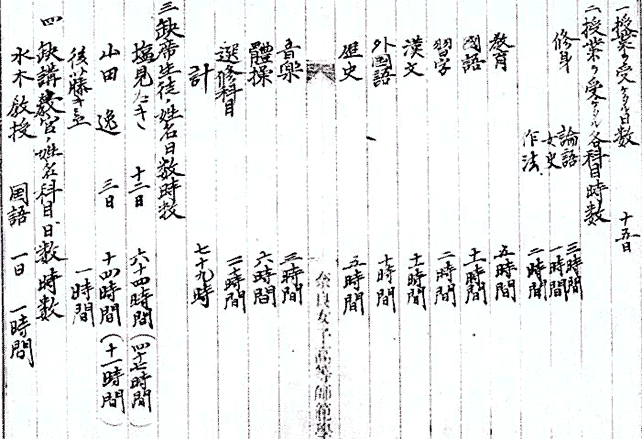 一 授業ヲ受ケタル日数 十五日
二 授業ヲ受ケタル各科目時数
修身 論語 三時間
女史 一時間
作法 二時間
教育 五時間
國語 十一時間
習字 二時間
漢文 十一時間
外国語 十時間
歴史 五時間
奈良女子高等師範學
音樂 三時間
體操 六時間
選修科目 二十時間
計 七十九時
三 缺席生徒ノ姓名日数時数
塩見たき 十二日 六十四時間(四十七時間)
小田 逸 三日 十四時間(十一時間)
後藤 一時間
四 缺講教官ノ姓名科目日数時数
水木教授 国語 一日 一時間